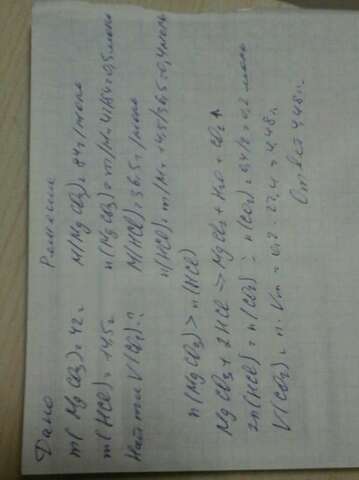 Дано
m(MgCO3) = 42г
m(HCl) = 14,5г
Найти V(CO2)-?
Решение
M(MgCO3) = 84г/моль
n(MgCO3) = m/M = 42/84 = 0,5моль
M(HCl) = 36,5г/моль
n(HCl) = m/M = 14,5/36,5 = 0,4моль
n(MgCO3) > n(HCl)
MgCO3 + 2HCl → MgCl2 + H2O + CO2↑
2n(HCl) = n(CO2) n(CO2) = 0,4/2 = 0,2 моль
V(CO2) = n · Vm = 0,2 · 22,4 = 4,48л
Ответ 4,48л.